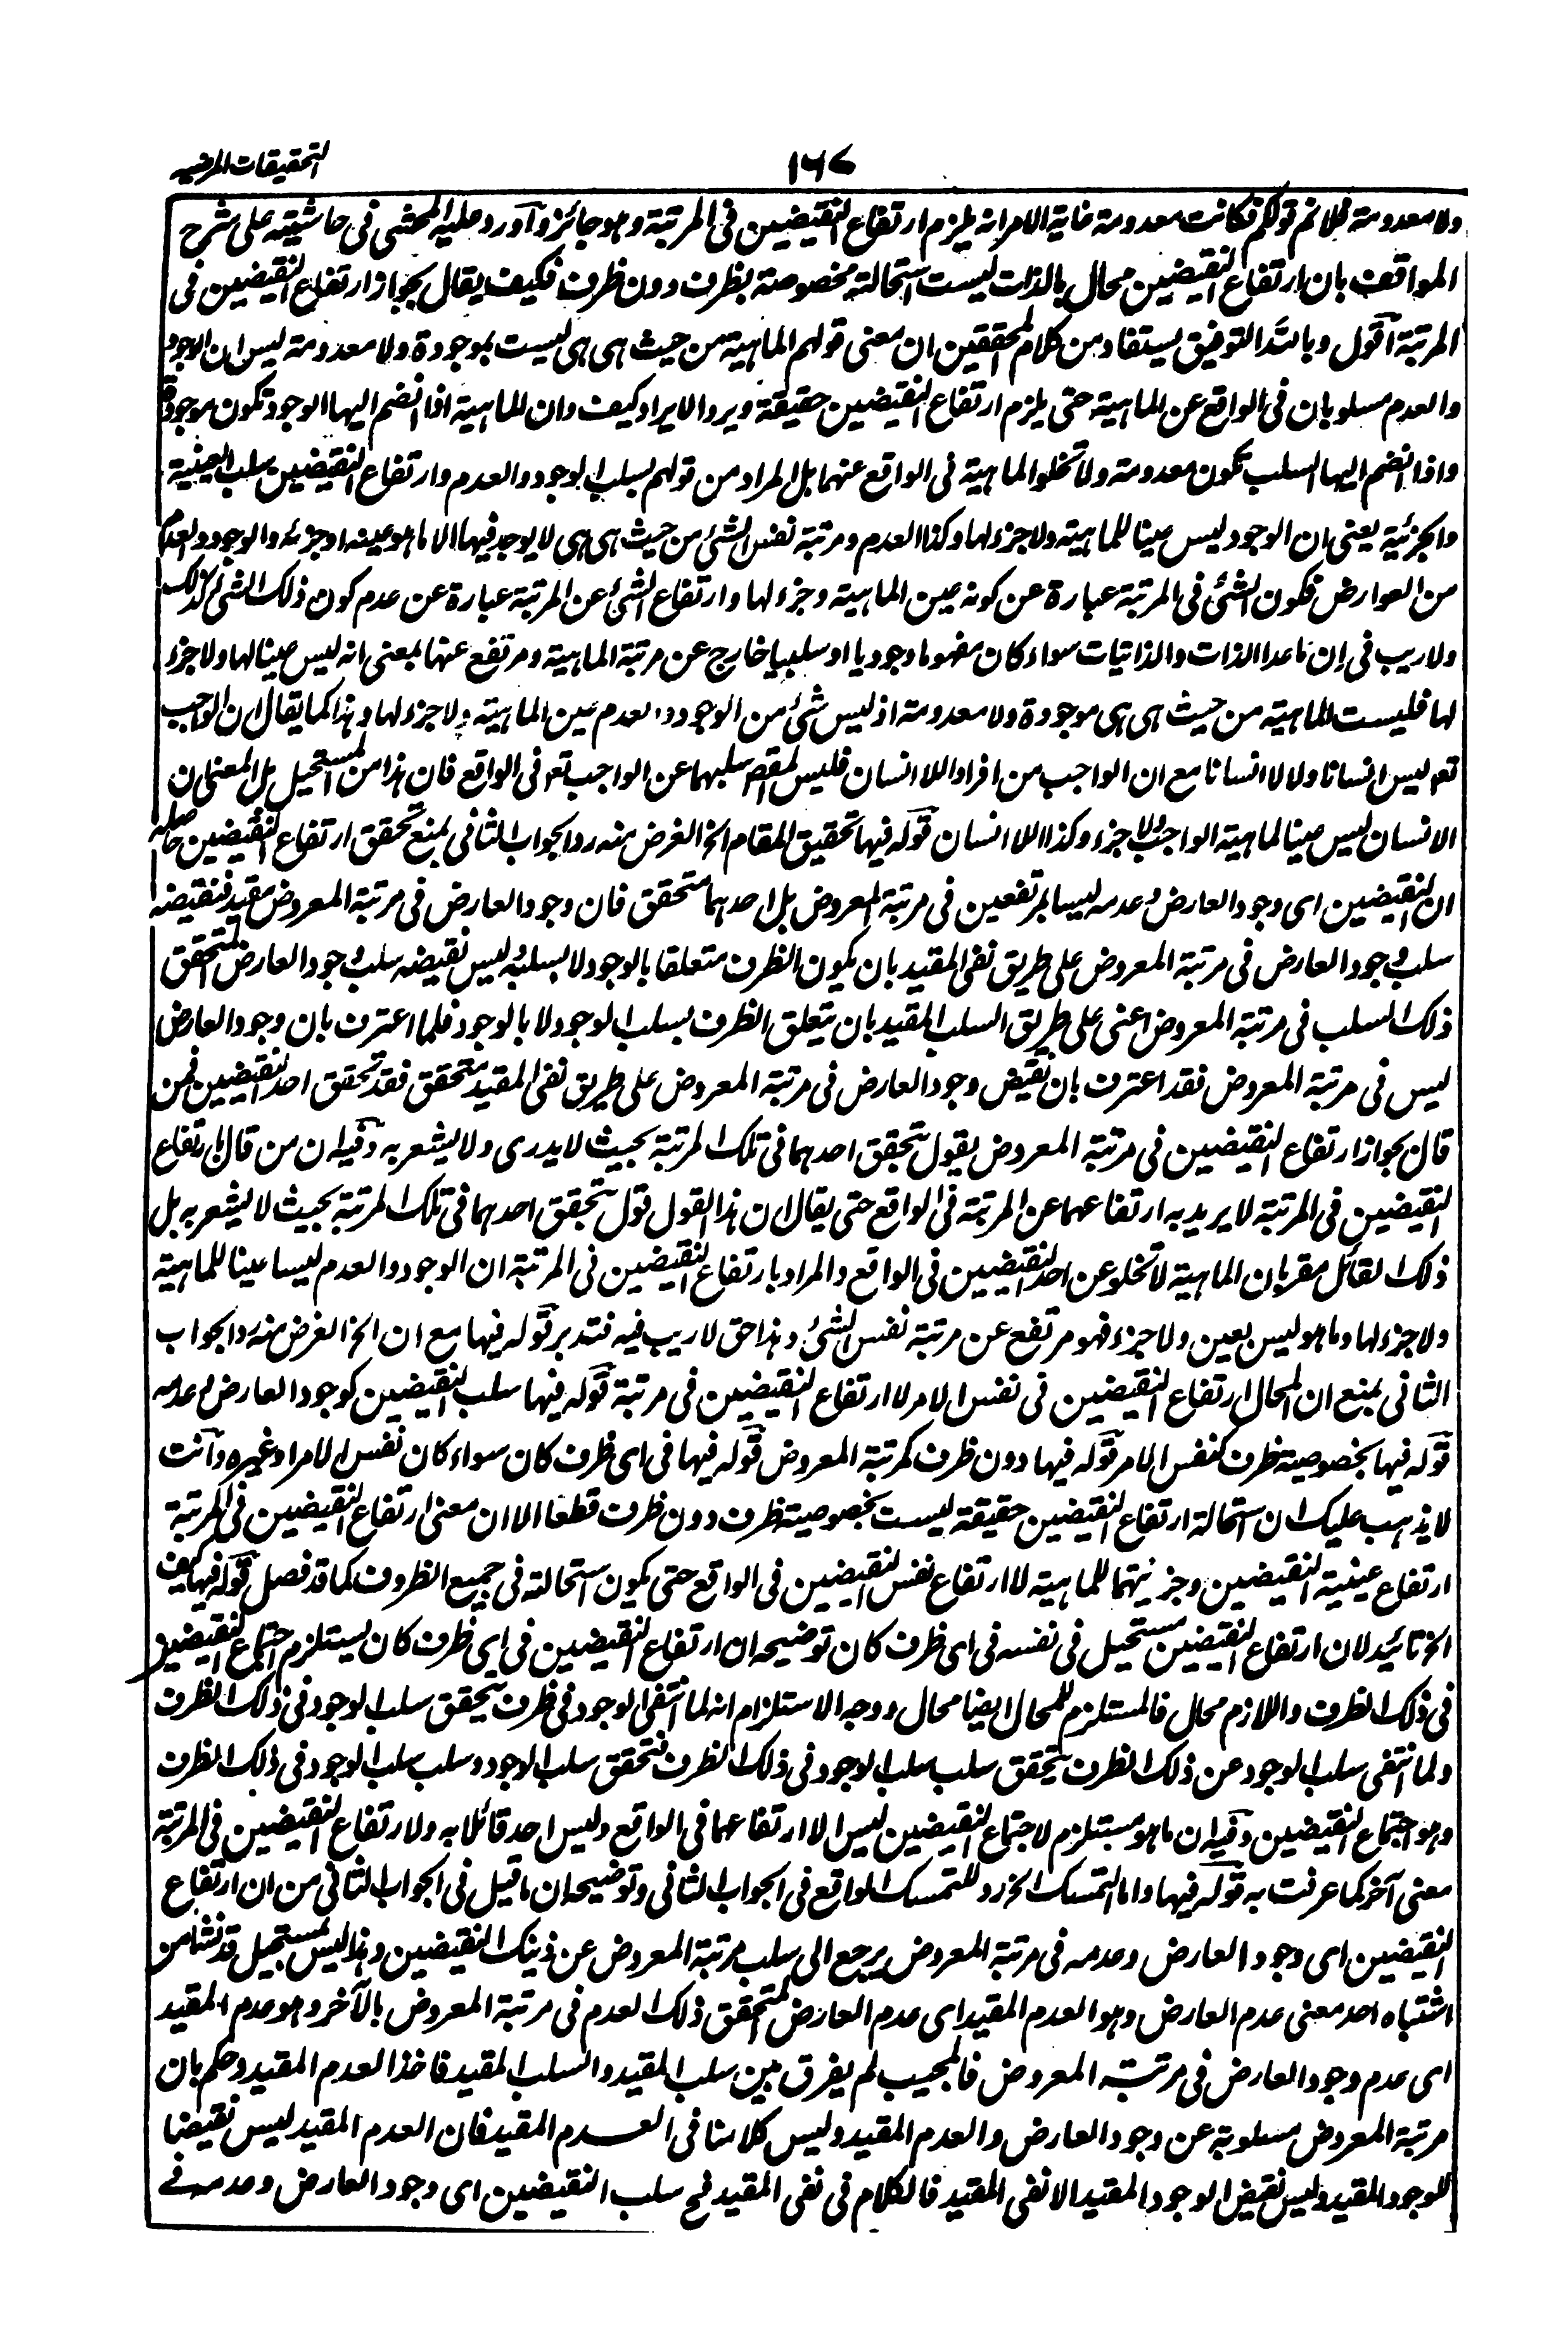 التحقيقات المرضيه
١٦٧
ولا معدومة فلا نم قولكم فكانت معدومة غاية الامر انه يلزم ارتفاع النقيضين فى المرتبة وهو جائز وآورد عليه المحشى فى حاشيته على شرح
المواقف بان ارتفاع النقيضين محال بالذات ليست استحالته مخصوصة بظرف دون ظرف فكيف يقال بجواز ارتفاع النقيضين فى
المرتبة آقول وبالله التوفيق يستفاد من كلام المحققين ان معنى قولهم الماهية من حيث هى هى ليست بموجودة ولا معدومة ليس ان الوجود
والعدم مسلوبان فى الواقع عن الماهية حتى يلزم ارتفاع النقيضين حقيقة ويرد الايراد كيف وان الماهية اذا انضم اليها الوجود تكون موجودة
واذا انضم اليها السلب تكون معدومة ولا تخلو الماهية فى الواقع عنهما بل المراد من قولهم بسلب الوجود والعدم وارتفاع النقيضين سلب العينية
والجزئية يعنى ان الوجود ليس عينا للماهية ولا جزء لها وكذا العدم ومرتبة نفس الشئ من حيث هى هى لا يوجد فيها الا ما هو عينه او جزئه والوجود والعدم
من العوارض فكون الشئ فى المرتبة عبارة عن كونه عين الماهية وجزء لها وارتفاع الشئ عن المرتبة عبارة عن عدم كون ذلك الشئ كذلك
ولا ريب فى ان ما عدا الذات والذاتيات سواء كان مفهوما وجوديا او سلبيا خارج عن مرتبة الماهية ومرتفع عنها بمعنى انه ليس عينا لها ولا جزء
لها فليست الماهية من حيث هى هى موجودة ولا معدومة اذ ليس شئ من الوجود والعدم عين الماهية ولا جزء لها وهذا كما يقال ان الواجب
تعه ليس انسانا ولا لا انسانا مع ان الواجب من افراد اللا انسان فليس المقصد سلبهما عن الواجب تعه فى الواقع فان هذا من المستحيل بل المعنى ان
الانسان ليس عينا لماهية الواجب ولا جزء وكذا اللا انسان قوله فيها تحقيق المقام الخ الغرض منه رد الجواب الثانى بمنع تحقق ارتفاع النقيضين حاصله
ان النقيضين اى وجود العارض وعدمه ليسا بمرتفعين فى مرتبة المعروض بل احدهما متحقق فان وجود العارض فى مرتبة المعروض مقيد فنقيضه
سلب وجود العارض فى مرتبة المعروض على طريق نفى المقيد بان يكون الظرف متعلقا بالوجود لا بسلبه وليس نقيضه سلب وجود العارض المتحقق
ذلك السلب فى مرتبة المعروض اعنى على طريق السلب المقيد بان يتعلق الظرف بسلب الوجود لا بالوجود فلما اعترف بان وجود العارض
ليس فى مرتبة المعروض فقد اعترف بان نقيض وجود العارض فى مرتبة المعروض على طريق نفى المقيد متحقق فقد تحقق احد النقيضين فمن
قال بجواز ارتفاع النقيضين فى مرتبة المعروض يقول بتحقق احدهما فى تلك المرتبة بحيث لا يدرى ولا يشعر به وفيه ان من قال بارتفاع
النقيضين فى المرتبة لا يريد به ارتفاعهما عن المرتبة فى الواقع حتى يقال ان هذا القول قول بتحقق احدهما فى تلك المرتبة بحيث لا يشعر به بل
ذلك القائل مقر بان الماهية لا تخلو عن احد النقيضين فى الواقع والمراد بارتفاع النقيضين فى المرتبة ان الوجود والعدم ليسا عينا للماهية
ولا جزء لها وما هو ليس بعين ولا جزء فهو مرتفع عن مرتبة نفس الشئ وهذا حق لا ريب فيه فتدبر قوله فيها مع ان الخ الغرض منه رد الجواب
الثانى بمنع ان المحال ارتفاع النقيضين فى نفس الامر لا ارتفاع النقيضين فى مرتبة قوله فيها سلب النقيضين كوجود العارض وعدمه
قوله فيها بخصوصية ظرف كنفس الامر قوله فيها دون ظرف كمرتبة المعروض قوله فيها فى اى ظرف كان سواء كان نفس الامر او غيره وآنت
لا يذهب عليك ان استحالة ارتفاع النقيضين حقيقة ليست بخصوصية ظرف دون ظرف قطعا الا ان معنى ارتفاع النقيضين فى المرتبة
ارتفاع عينية النقيضين وجزئيتهما للماهية لا ارتفاع نفس النقيضين فى الواقع حتى يكون استحالته فى جميع الظروف كما قد فصل قوله فيها كيف
الخ تائيد لان ارتفاع النقيضين مستحيل فى نفسه فى اى ظرف كان توضيحه ان ارتفاع النقيضين فى اى ظرف كان يستلزم اجتماع النقيضين
فى ذلك الظرف واللازم محال فالمستلزم للمحال ايضا محال ووجه الاستلزام انه لما انتفى الوجود فى ظرف يتحقق سلب الوجود فى ذلك الظرف
ولما انتفى سلب الوجود عن ذلك الظرف يتحقق سلب سلب الوجود فى ذلك الظرف فتحقق سلب الوجود وسلب سلب الوجود فى ذلك الظرف
وهو اجتماع النقيضين وفيه ان ما هو مستلزم لاجتماع النقيضين ليس الا ارتفاعهما فى الواقع وليس احد قائلا به ولارتفاع النقيضين فى المرتبة
معنى آخر كما عرفت به قوله فيها واما التمسك الخ رد للتمسك الواقع فى الجواب الثانى وتوضيحه ان ما قيل فى الجواب الثانى من ان ارتفاع
النقيضين اى وجود العارض وعدمه فى مرتبة المعروض يرجع الى سلب مرتبة المعروض عن ذينك النقيضين وهذا ليس بمستحيل قد نشأ من
اشتباه احد معنى عدم العارض وهو العدم المقيد اى عدم العارض المتحقق ذلك العدم فى مرتبة المعروض بالآخر وهو عدم المقيد
اى عدم وجود العارض فى مرتبة المعروض فالمجيب لم يفرق بين سلب المقيد والسلب المقيد فاخذ العدم المقيد وحكم بان
مرتبة المعروض مسلوبة عن وجود العارض والعدم المقيد وليس كلامنا فى العدم المقيد فان العدم المقيد ليس نقيضا
للوجود المقيد وليس نقيض الوجود المقيد الا نفى المقيد فالكلام فى نفى المقيد فح سلب النقيضين اى وجود العارض وعدمه فے